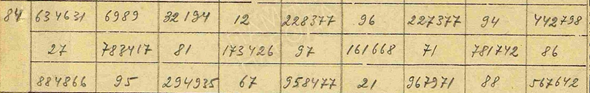 84 634631 6989 32194 12 228377 96 227377 94 442798
27 783417 81 173426 97 161668 71 781742 86
884866 95 294935 67 958477 21 967971 88 567642